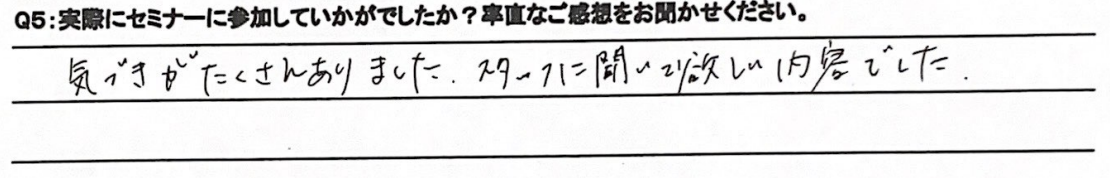 Q5:実際にセミナーに参加していかがでしたか？率直なご感想をお聞かせください。
気づきがたくさんありました。スタッフに聞いて欲しい内容でした。